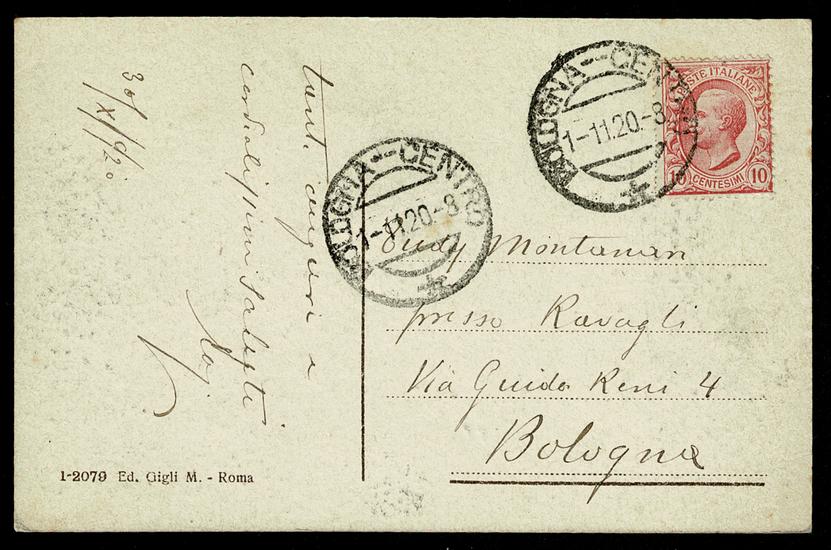 30/X/920
tanti auguri e
cordialissimi saluti
1-2079 Ed. Gigli M. - Roma
BOLOGNA--CENTRO
1-11.20.-8
BOLOGNA--CENTRO
1-11.20.-8
POSTE ITALIANE
10 CENTESIMI 10
Montanari
presso Ravagli
Via Guido Reni 4
Bologna